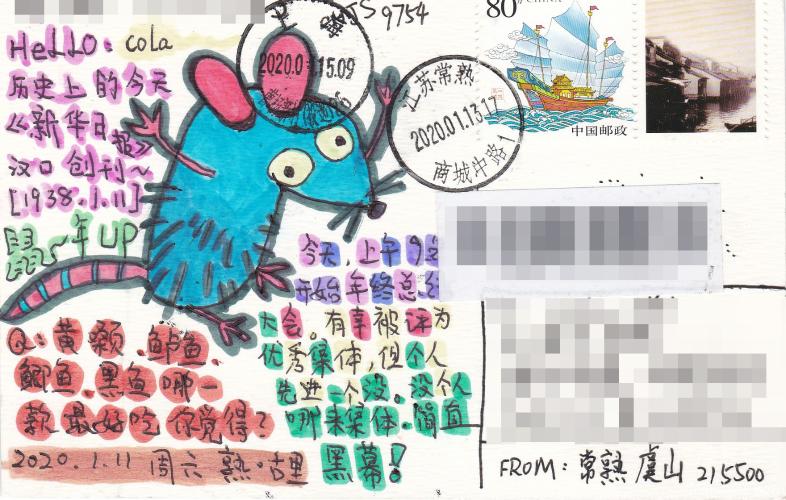 JS 9754
80
CHINA
中国邮政
2020.0 .15.09
江苏常熟
2020.01.13.17
商城中路1
HeLLO: cola
历史上的今天
《新华日报》
汉口创刊~
[1938.1.11]
鼠~年UP
今天,上午9
开始年终总
大会。有幸被评为
优秀集体,但个人
先进一个没。没个人
哪来集体。简直
黑幕!
Q:黄颡.鲈鱼.
鲫鱼.黑鱼哪一
款最好吃你觉得?
2020.1.11 周六 熟·古里
FROM: 常熟 虞山 215500